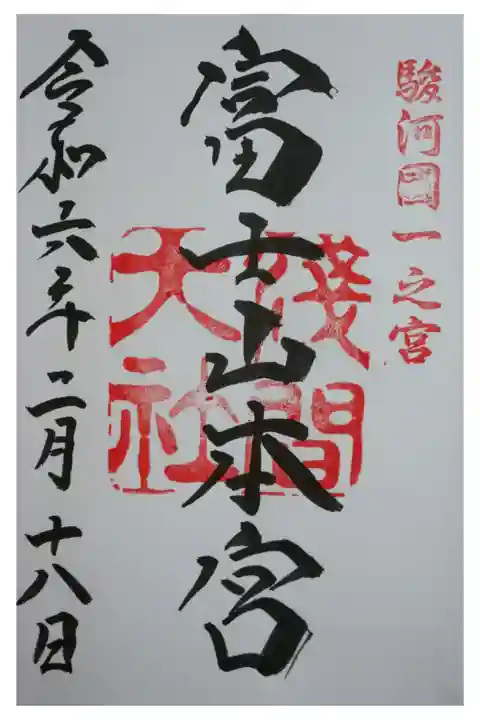 駿河国一之宮
富士山本宮
淺間大社
令和六年二月十八日